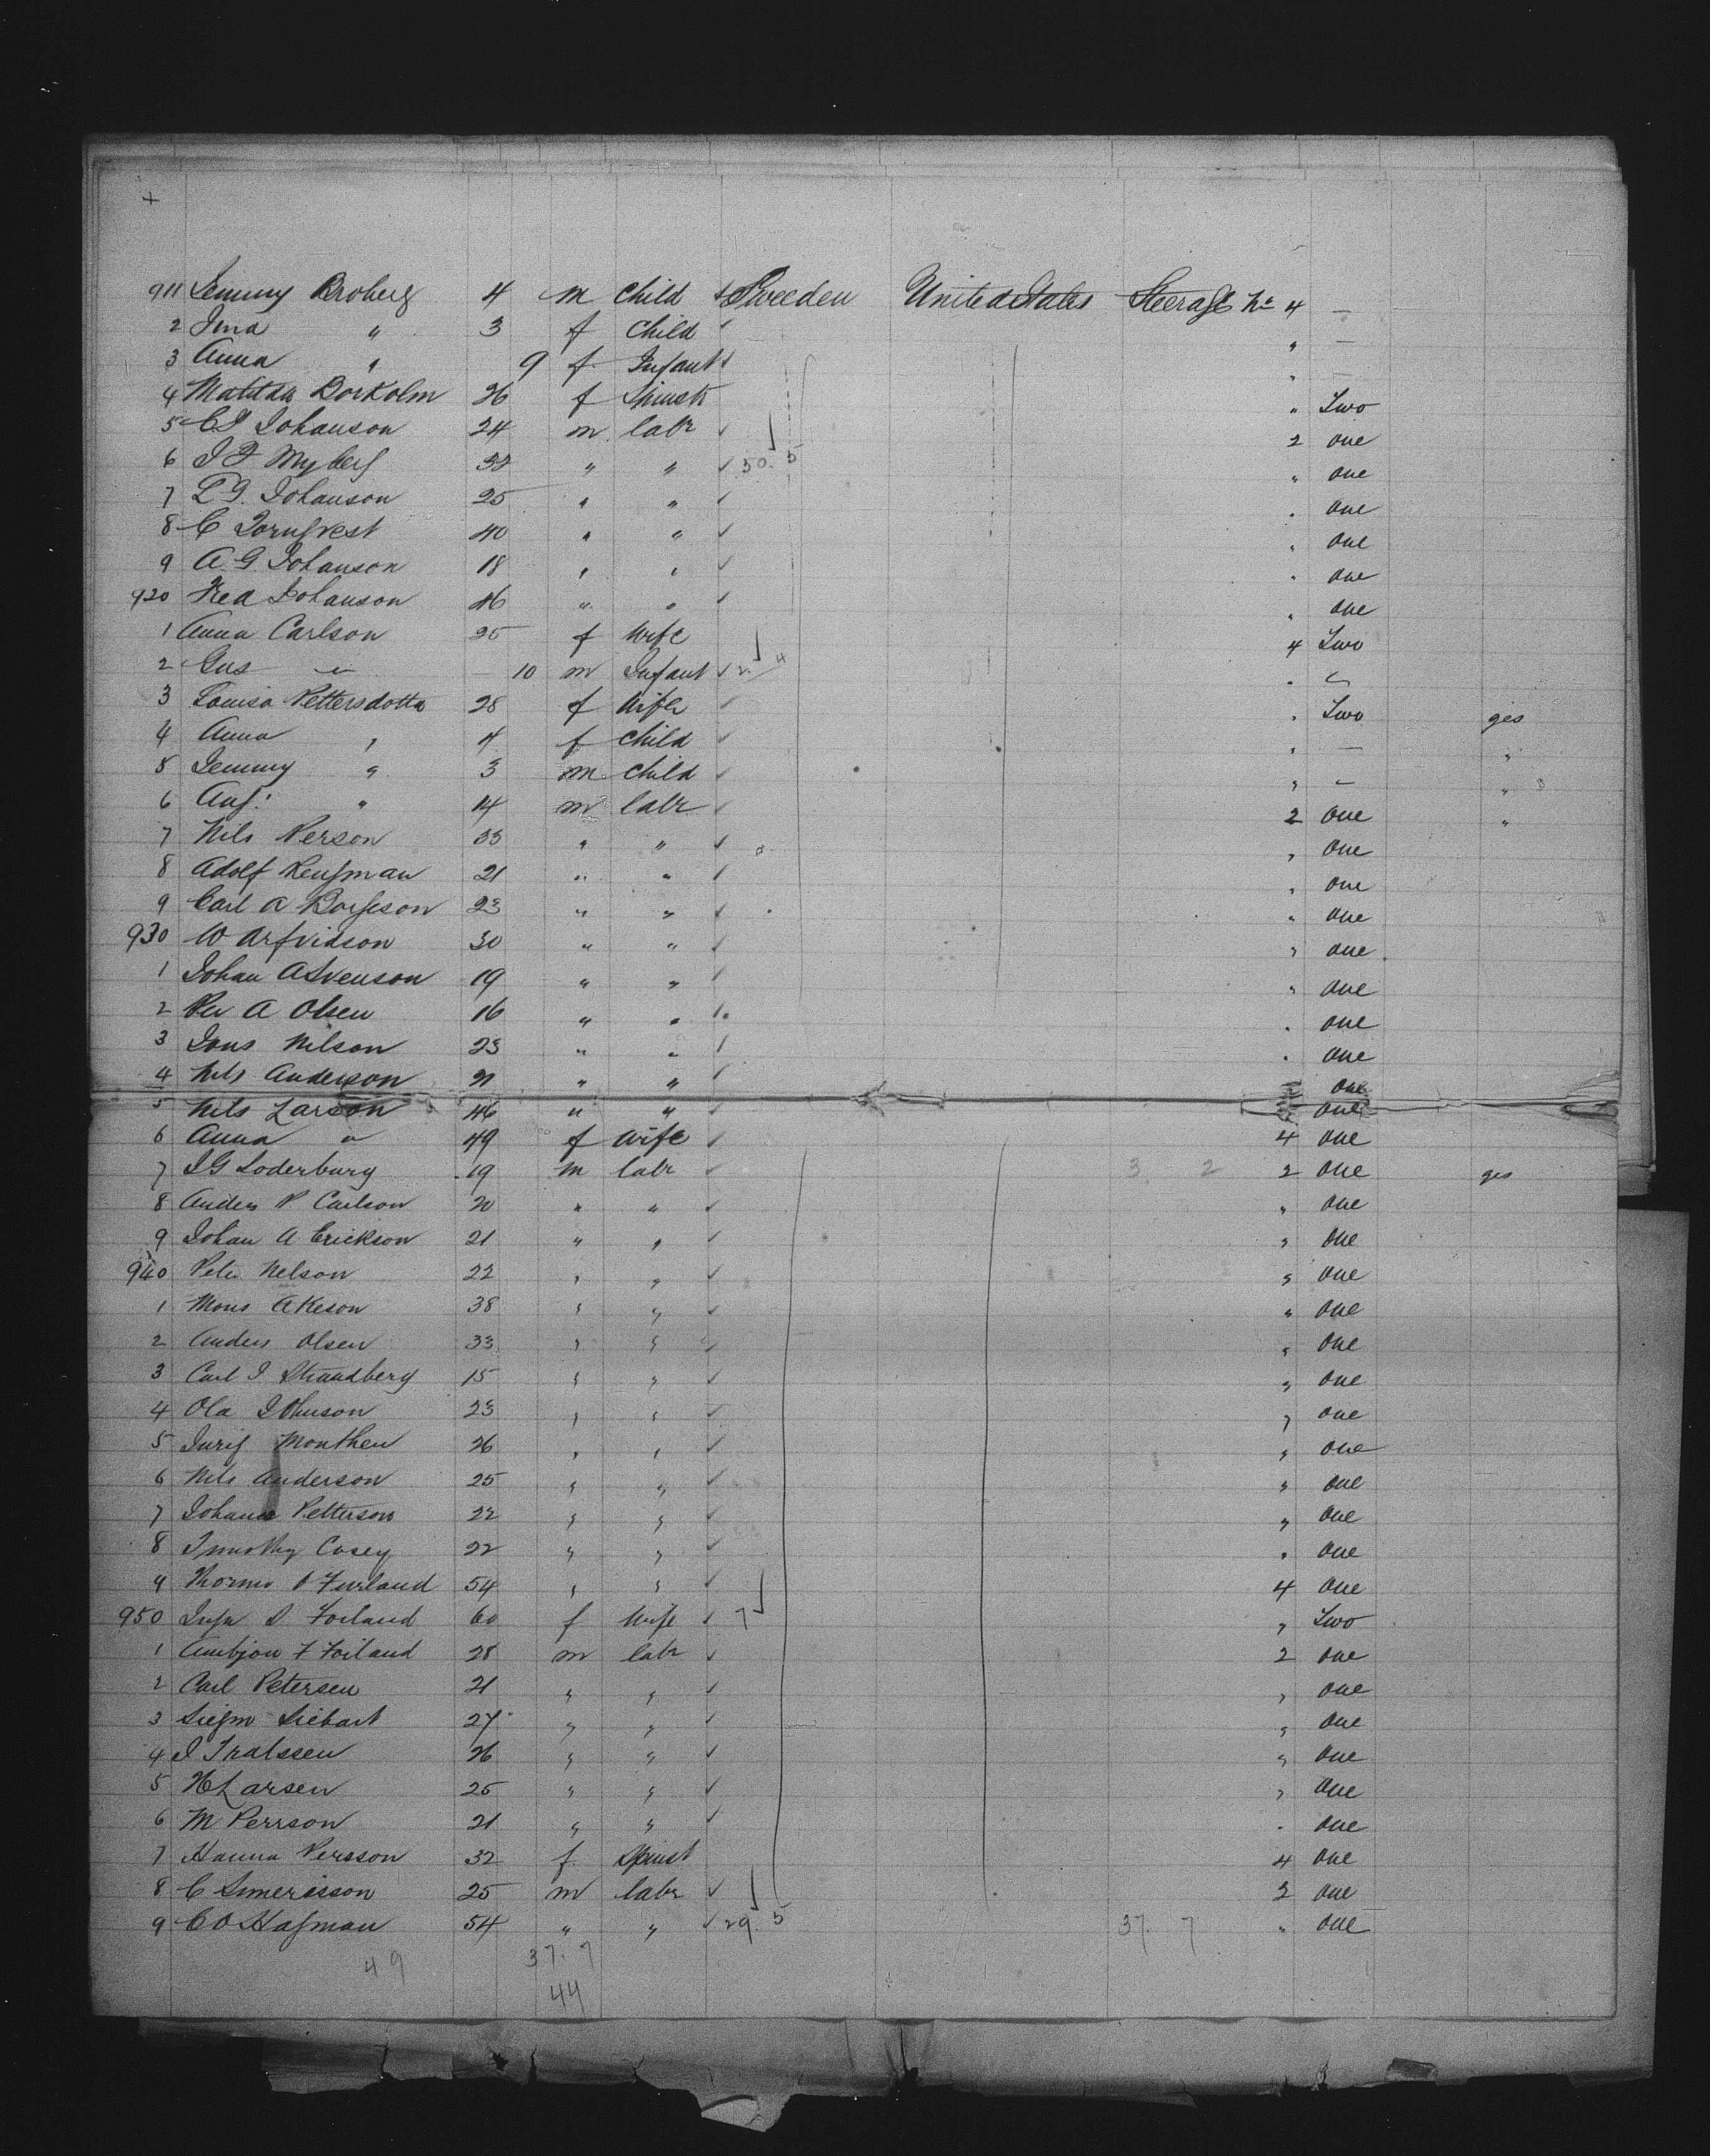 +
911 Jemmy Broberg 4 m Child Sweeden United States Steerage No 4 —
2 Ima " 3 f Child " —
3 Anna " 9 f Infant " —
4 Matilda Borkolm 26 f Spinstr " Two
5 C J Johanson 24 m labr 2 one
6 J F Myberg " " 50. 5 " one
7 L G. Johanson 25 " " " one
8 C Torngvest 40 " " " one
9 A. G. Johanson 18 " " " one
920 Fred Johanson 46 " " " one
1 Anna Carlson 25 f Wife 4 Two
2 Gus " 10 m Infant 2. 4 "
3 Louisa Pettersdotta 28 f Wife " Two yes
4 Anna " 4 f Child " — "
5 Jemmy " 3 m Child " — "
6 Aug: " 14 m labr 2 one "
7 Nils Person 33 " " " one
8 Adolf Rengman 21 " " " one
9 Carl A Borgeson 23 " " " one
930 W Arfvidson 30 " " " one
1 Johan A Svenson 19 " " " one
2 Per A Olsen 16 " " " one
3 Jons Nilson 23 " " " one
4 Nils Anderson 21 " " " one
5 Nils Larson 46 " " " one
6 Anna " 49 f Wife 4 one
7 J G Soderburg 19 m labr 3 2 2 one yes
8 Anders P Carlson 20 " " " one
9 Johan A Erickson 21 " " " one
940 Peter Nelson 22 " " " one
1 Mons Akeson 38 " " " one
2 Anders Olsen 33 " " " one
3 Carl J Strandberg 15 " " " one
4 Ola Johnson 23 " " " one
5 Monthen 26 " " " one
6 Nils Anderson 25 " " " one
7 Johan Petterson 22 " " " one
8 Timothy Casey 22 " " " one
9 54 " " 4 one
950 60 f Wife 7 " Two
1 28 m labr 2 one
2 Carl Petersen 21 " " " one
3 Siegm Siebart 27 " " " one
4 J Tralssen 26 " " " one
5 H Larsen 25 " " " one
6 M Perrson 21 " " " one
7 Hanna Persson 32 f. Spinst 4 one
8 C Simerisson 25 m labr 2 one
9 C O Hagman 54 " " 29. 5 37. 7 " one
49 37. 7
44